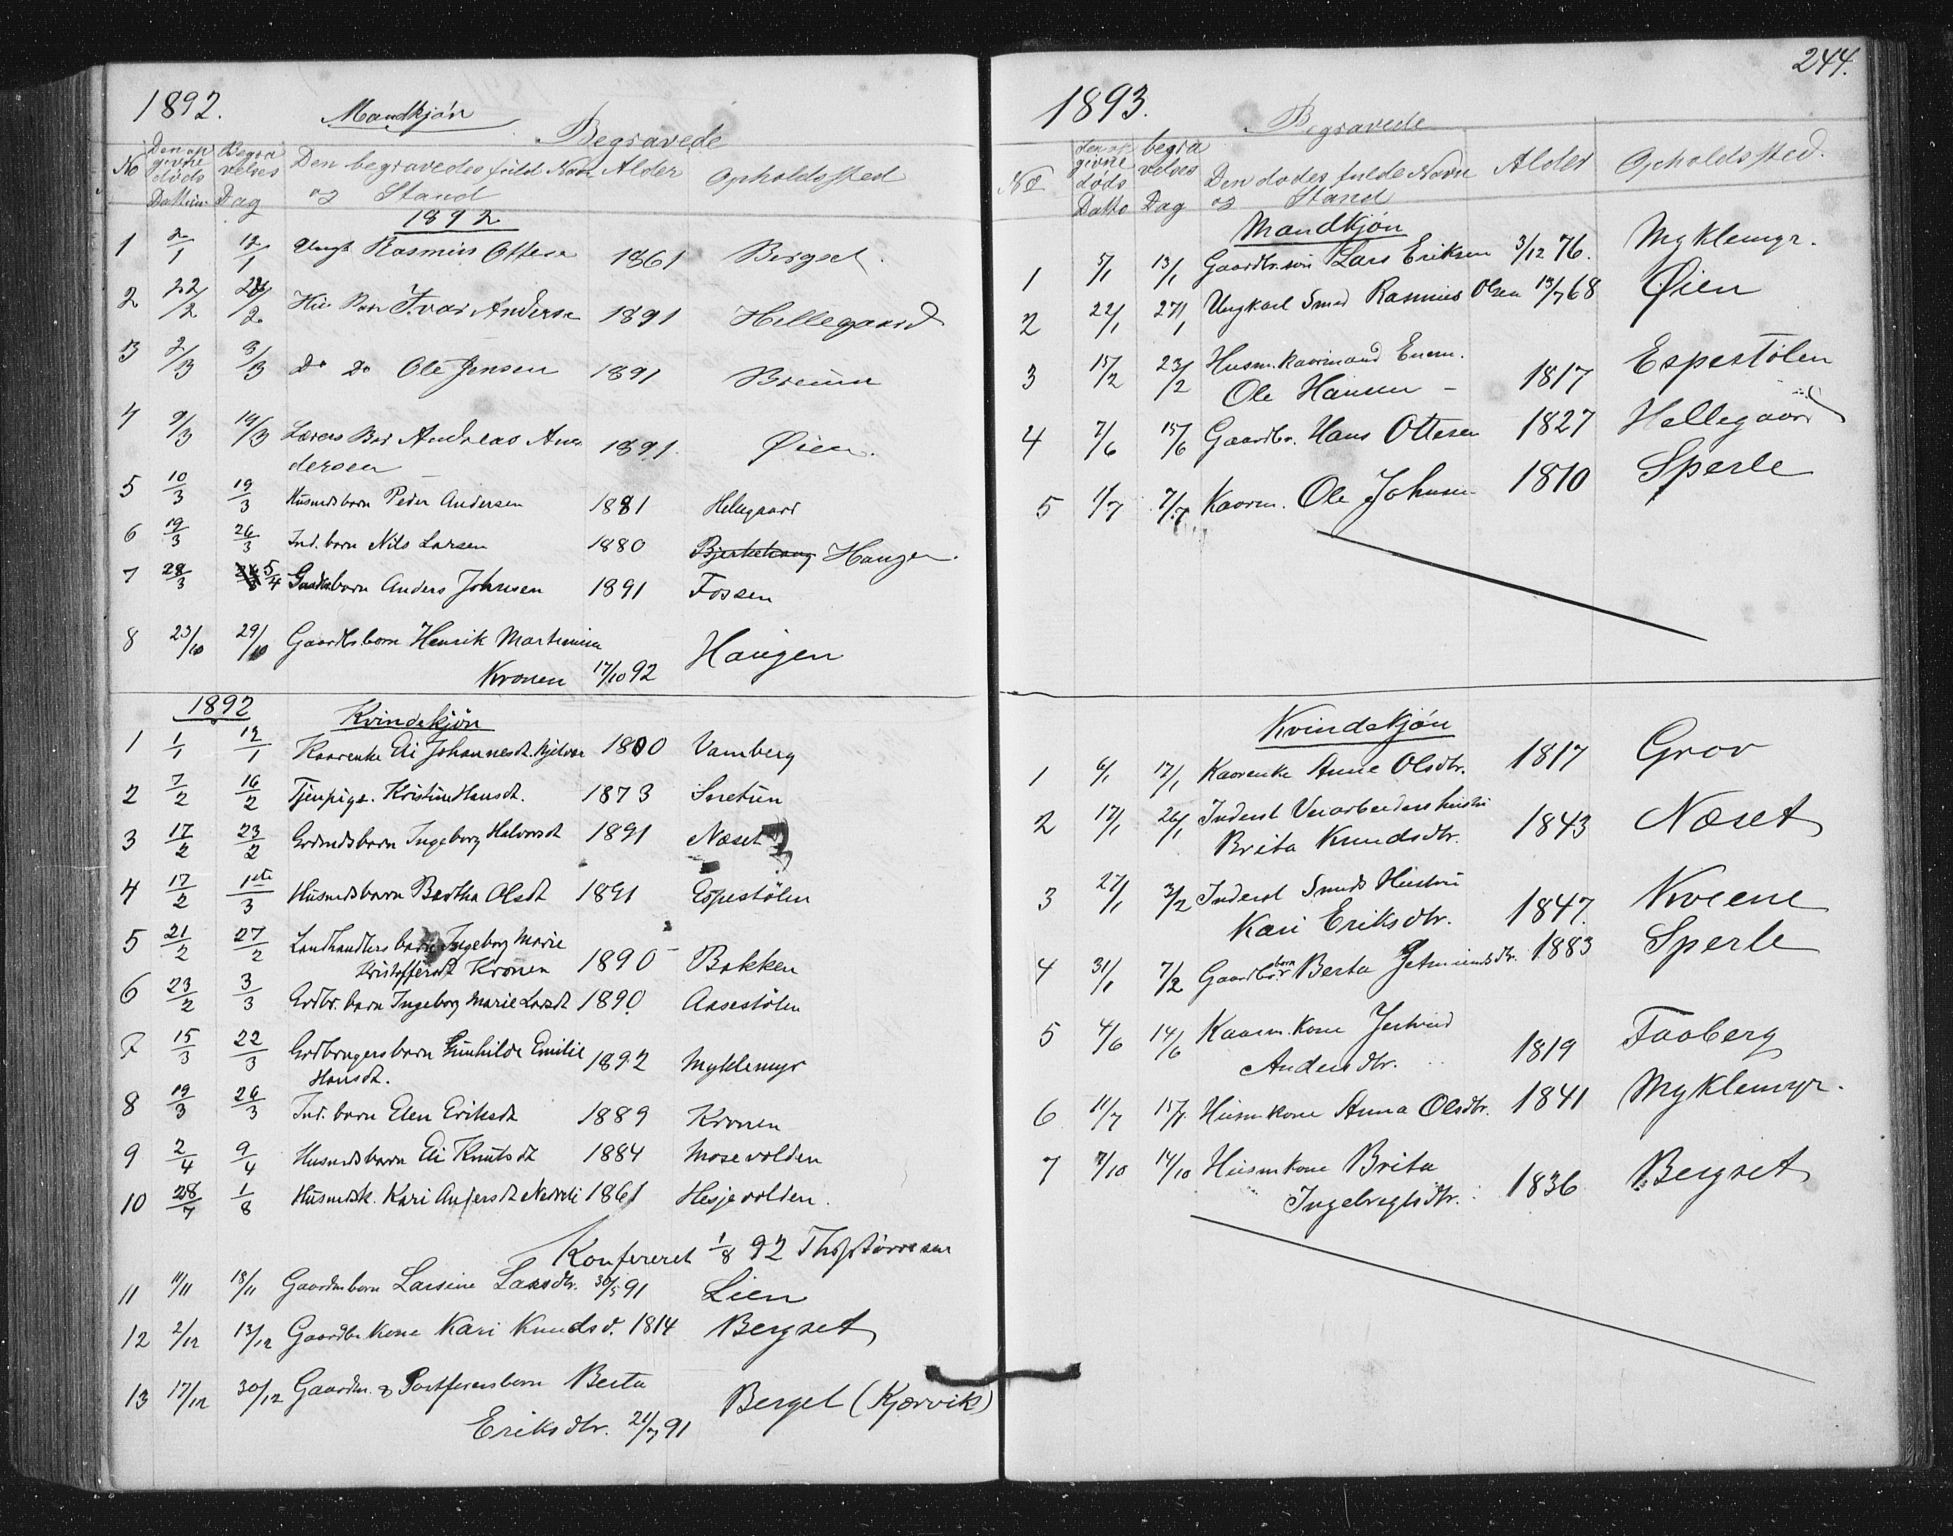 1892.
Mandkjøn
Begravede
No Den op givne døds Dattum Begra velses Dag Den begravedes fuld Navn og Stand Alder Opholdssted
1892
1 2/1 12/1 Ungk Rasmus Ottesen 1861 Bergset.
2 22/2 28/2 Hus Barn Ivar Anderse 1891 Hellegaard
3 2/3 9/3 Do Do Ole Jensen 1891 Breum
4 9/3 19/3 Lærers Barn Andreas An-
dersen 1891. Øien.
5 10/3 19/3 Husmdsbarn Peder Andersen 1881 Hellegaard
6 19/3 26/3 Ind. barn Nils Larsen 1880 Haugen.
7 28/3 5/4 Gaardmbarn Anders Johnsen 1891 Fossen
8 23/10 29/10 Gaardbr.barn Henrik Martinusen
Kronen 17/10 92 Haugen
1892 Kvindekjøn
1 1/1 12/1 Kaarenke Eli Johannesdt. 1800 Vamberg
2 7/2 16/2 Tjenpige. Kristine Hansdt. 1873 Snetun
3 17/2 23/2 Grdmdsbarn Ingeborg Halvorsdt 1891 Næset
4 17/2 1ste/3 Husmdsbarn Bertha Olsdt 1891 Espestølen
5 21/2 27/2 Landhandlers barn Ingeborg Marie
Kristoffersdt Kronen 1890 Bakken
6 23/2 3/3 Grdbr. barn Ingeborg Marie Larsdt 1890 Aasestølen
7 15/3 22/3 Grdbrugersbarn Gunhilde Emilie
Hansdt. 1892 Myklemyr
8 19/3 26/3 Ind. barn Elen Eriksdt 1889 Kronen
9 2/4 9/4 Husmdsbarn Eli Knutsdt 1884 Mosevolden
10 28/7 1/8 Husmdsk. Kari Andersdt 1861 Hesjevolden.
Konfereret 1/8 92 Th. Størresen
11 11/11 18/11 Gaardmbarn Larsine Larsdtr. 30/5 91 Lien
12 2/12 13/12 Gaardbr. Kone Kari Knudsd. 1814 Bergset
13 17/12 30/12 Gaardm. & Postførersbarn Berta
Eriksdtr. 21/7 91 Berget (Kjærvik)
244.
1893.
Begravede
No den op givne døds Datto begra velses Dag Den dødes fulde Navn og Stand Alder Opholdssted.
Mandkjøn
1 5/1 13/1 Gaardbr.søn Lars Eriksen 3/12 76. Myklemyr.
2 22/1 27/1 Ungkarl Smed Rasmus Olsen 13/7 68 Øien
3 15/2 23/2 Husm. Kaarmand Enem.
Ole Hansen – 1817 Espestølen
4 7/6 15/6 Gaardbr. Hans Ottesen 1827 Hellegaard
5 1/7 7/7 Kaarm. Ole Johnsen 1810 Sperle
Kvindekjøn
1 6/1 12/1 Kaarenke Anne Olsdtr. 1817 Grov
2 17/1 26/1 Inderst Veiarbeiders hustru
Brita Knudsdtr. 1843 Næset
3 27/1 3/2 Inderst Smeds Hustru
Kari Eriksdtr. 1847. Kveene
4 31/1 7/2 Gaardbr barn Berta Jetmundsdtr. 1883 Sperle
5 4/6 14/6 Kaarm. Kone Jertrud
Andersdtr. 1819 Faaberg
6 11/7 15/7 Husmkone Anna Olsdtr. 1841 Myklemyr.
7 7/10 14/10 Husmkone Brita
Ingebregtsdtr. 1836 Bergset